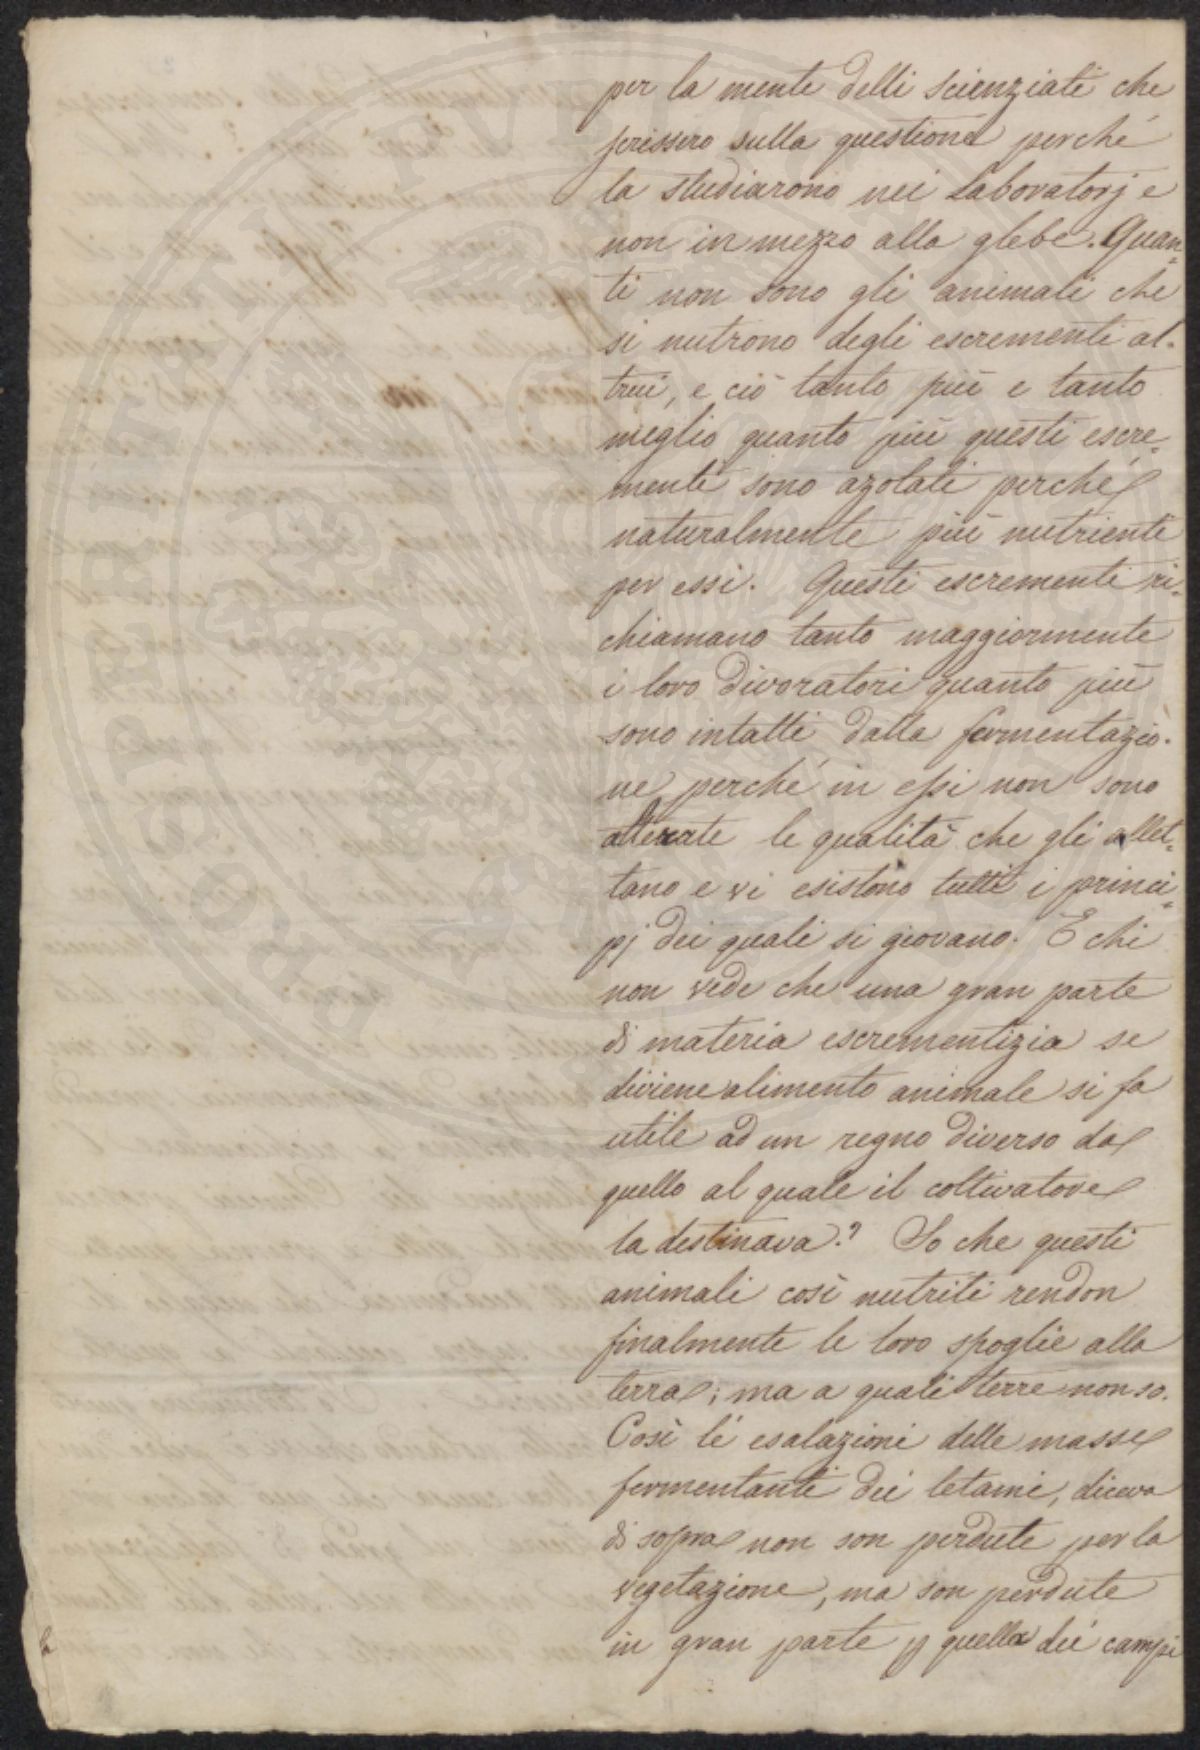 per la mente delli scienziati che
scrissero sulla questione perché
la studiarono nei Laboratorj e
non in mezzo alla glebe. Quan=
ti non sono gli animali che
si nutrono degli escrementi al-
trui, e ciò tanto più e tanto
meglio quanto più questi escre=
menti sono azotati perché
naturalmente più nutrienti
per essi. Questi escrementi ri=
chiamano tanto maggiormente
i loro divoratori quanto più
sono intatti dalla fermentazio-
ne perché in essi non sono
alterate le qualità che gli allet=
tano e vi esistono tutti i princi=
pj dei quali si giovano. E chi
non vede che una gran parte
di materia escrementizia se
diviene alimento animale si fa
utile ad un regno diverso da
quello al quale il coltivatore
la destinava? So che questi
animali così nutriti rendon
finalmente le loro spoglie alla
terra; ma a quali terre non so.
Così le esalazioni delle masse
fermentanti dei letami, diceva
di sopra non son perdute per la
vegetazione, ma son perdute
in gran parte p quella dei campi